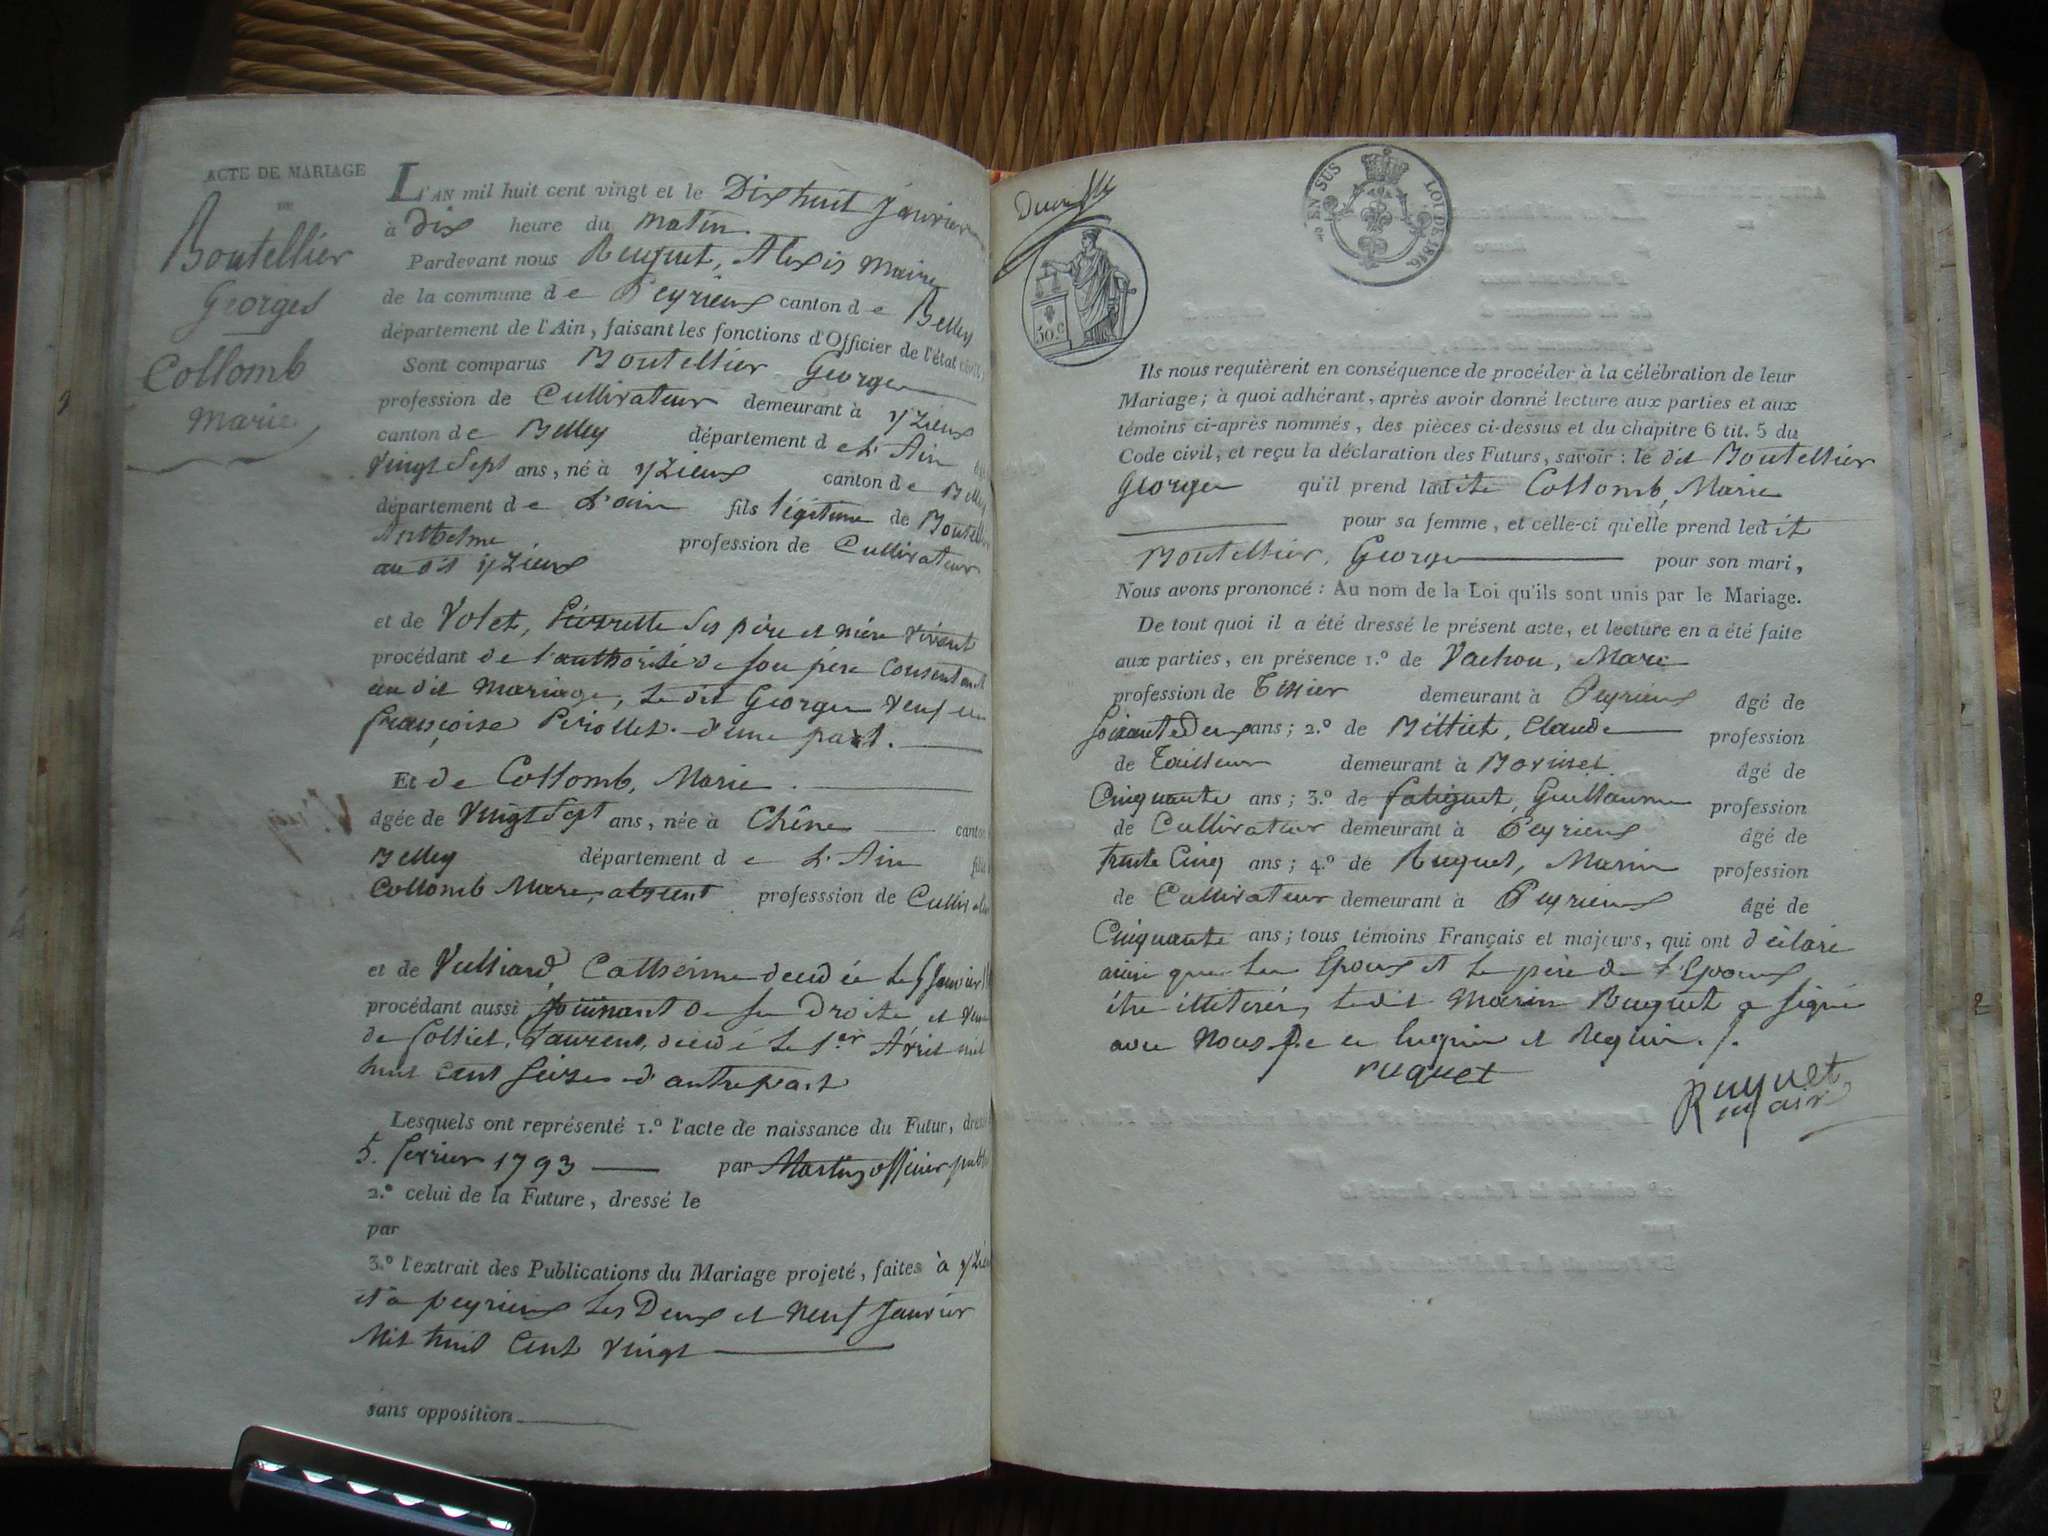 ACTE DE MARIAGE
DE
Boutellier
Georges
Collomb
Marie
L'AN mil huit cent vingt et le Dix huit Janvier
à dix heure du matin
Pardevant nous Ruguet, Alexis Maire
de la commune de Peyrieux canton de Belley
département de l'Ain, faisant les fonctions d'Officier de l'état civil,
Sont comparus Boutellier George
profession de Cultivateur demeurant à yzieux
canton de Belley département de L'Ain
vingt sept ans, né à yzieux canton de Belley
département de L'ain fils légitime de Boutell
Anthelme profession de Cultivateur
au dit yzieux
et de Volet, Pierrette ses père et mère vivant
procédant de l'authorité de son père Consentant
au dit mariage, le dit George veuf
françoise Piriollet d'une part.
Et de Collomb, Marie
âgée de vingt sept ans, née à Chêne canton
Belley département de L'Ain
Collomb Marc, absent professsion de Cultivat
et de Vulliard, Catherine decedée le 5 Janvier
procédant aussi jouissant de ses Droits et veuve
de Solliet, Laurent, décédé le 1er Avril mil
huit cent seize d'autre part
Lesquels ont représenté 1.º l'acte de naissance du Futur, dressé
5. fevrier 1793 par Martin officier publ
2.º celui de la Future, dressé le
par
3.º l'extrait des Publications du Mariage projeté, faites à yzieu
et à peyrieux les Deux et neuf Janvier
Mil huit Cent vingt
sans opposition
EN SUS
LOI DE 1816.
50.c
Ils nous requièrent en conséquence de procéder à la célébration de leur
Mariage; à quoi adhérant, après avoir donné lecture aux parties et aux
témoins ci-après nommés, des pièces ci-dessus et du chapitre 6 tit. 5 du
Code civil, et reçu la déclaration des Futurs, savoir: le dit Boutellier
George qu'il prend ladite Collomb, Marie
pour sa femme, et celle-ci qu'elle prend ledit
Boutellier, George pour son mari,
Nous avons prononcé: Au nom de la Loi qu'ils sont unis par le Mariage.
De tout quoi il a été dressé le présent acte, et lecture en a été faite
aux parties, en présence 1.º de Vachon, Marc
profession de Tissier demeurant à Peyrieux âgé de
soixante Deux ans; 2.º de Billiet, Claude profession
de Tailleur demeurant à âgé de
Cinquante ans; 3.º de Guillaume profession
de Cultivateur demeurant à Peyrieux âgé de
trente Cinq ans; 4.º de Ruguet, Marin profession
de Cultivateur demeurant à Peyrieux âgé de
Cinquante ans; tous témoins Français et majeurs, qui ont déclaré
ainsi que les Epoux et le père de l'Epoux
être illiterés, le dit Marin Ruguet a signé
avec nous de ce enquis et Requis ./.
ruguet
Ruguet
maire